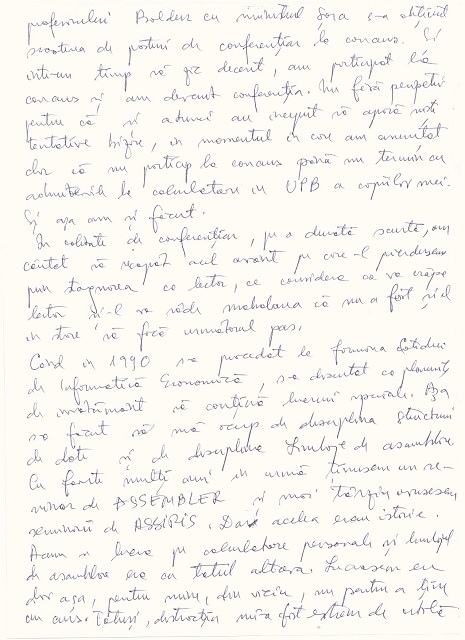 profesorului Bolder cu ministrul Șora s-a obținut
scoatina de posturi de conferențiar la concurs. Și
într-un timp să zic decent, am participat la
concurs și am devenit conferențiar. Nu fără peripeții
pentru că și atunci au început să apară niște
tentative bizare, în momentul în care am anunțat
clar că nu particip la concurs până nu termin cu
admiterile la calculatoare în UPB a copiilor mei.
Și așa am și făcut.
În calitate de conferențiar, pe o durată scurtă, am
căutat să recapăt acel avant pe care-l pierdusem
prin stagnarea ca lector, ce considera că va crăpa
lector și-l va râde mahalaua că nu a fost și el
în stare să facă următorul pas.
Când în 1990 s-a procedat la formarea Catedrei
de Informatică Economică, s-a discutat ca planul
de învățământ să conțină lucruri speciale. Așa
s-a făcut să mă ocup de disciplina Structuri
de date și de disciplina Limbaje de asamblare.
Cu foarte mulți ani în urmă ținusem un se-
minar de ASSEMBLER și mai târziu avusesem
seminarii de ASSIRIS. Dar acelea erau istorie.
Acum se lucra pe calculatoare personale și limbajul
de asamblare era cu totul altceva. Lucrasem eu
doar așa, pentru mine, din viciu, nu pentru a ține
un curs. Totuși, distracția mi-a fost extrem de utilă